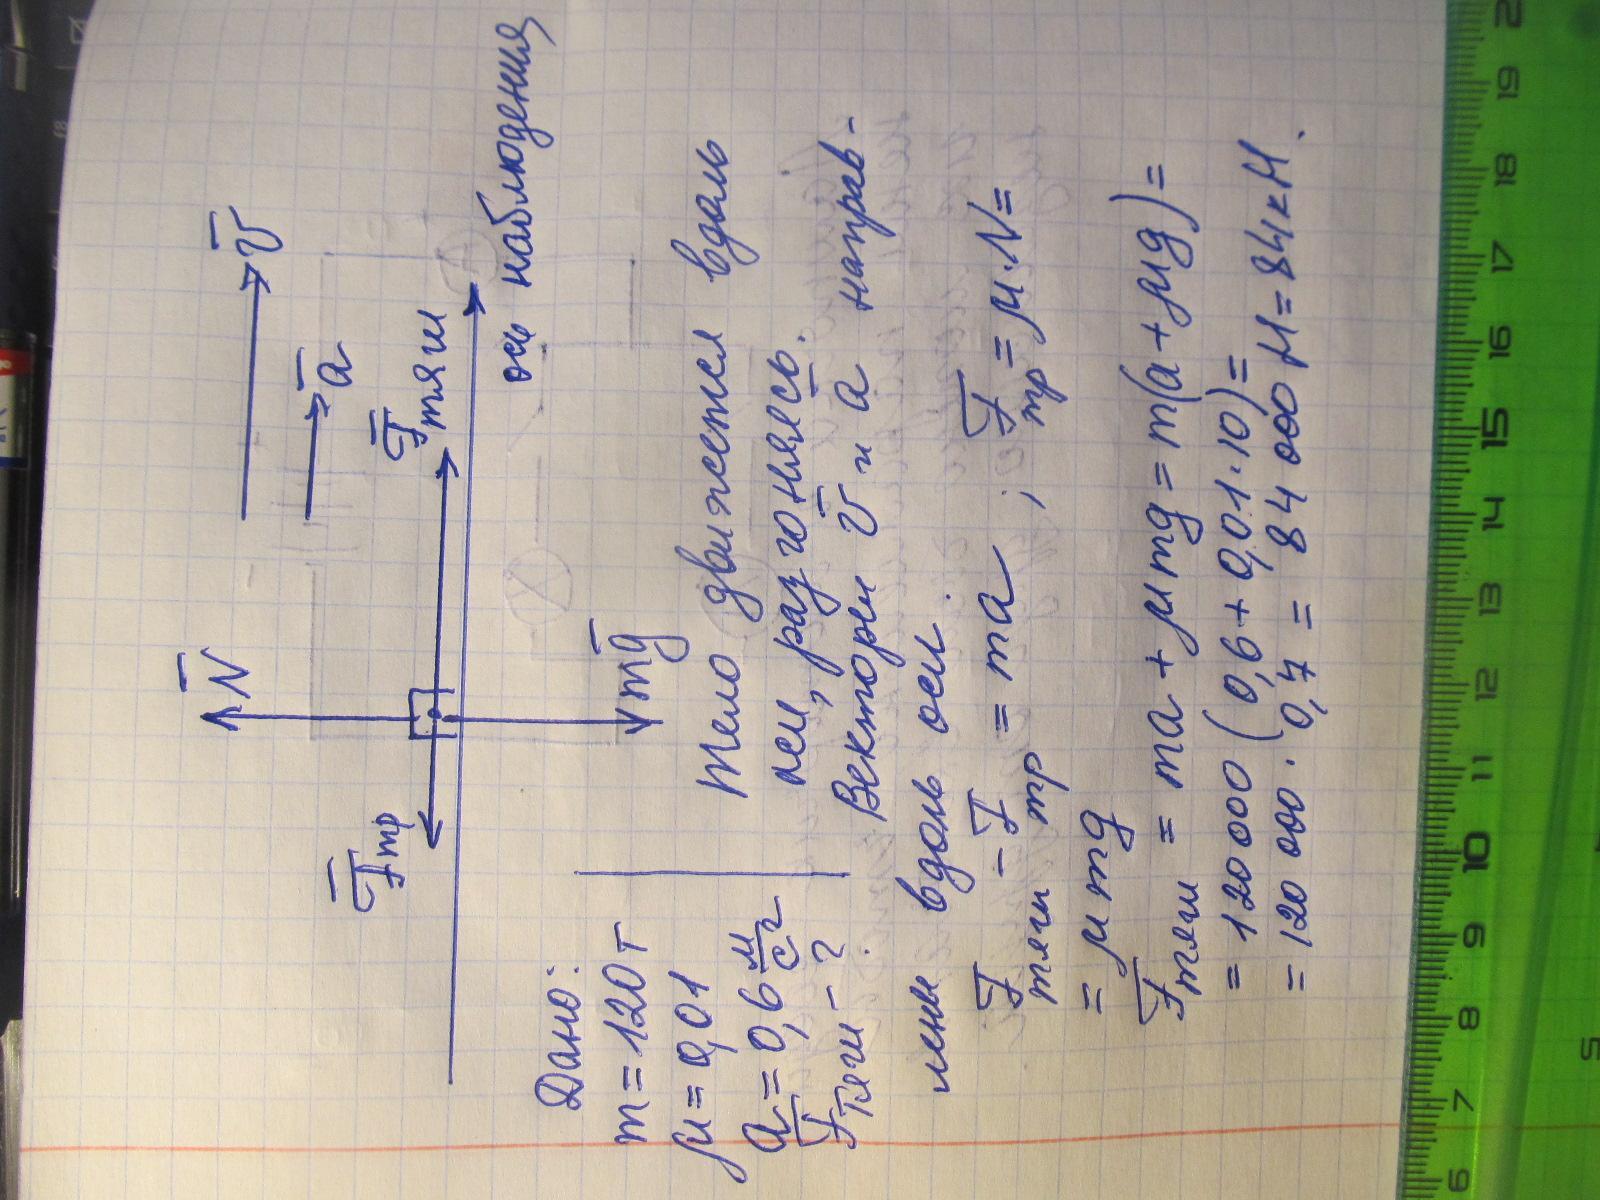 N̄
v̄
ā
F̄тр
F̄тяги
ось наблюдения
mḡ
Дано:
m = 120 т
μ = 0,01
a = 0,6 м/с²
F̄тяги - ?
Тело движется вдоль
оси, разгоняясь.
Векторы v̄ и ā направ-
лены вдоль оси.
F̄тяги - F̄тр = ma ; F̄тр = μ·N =
= μmg
F̄тяги = ma + μmg = m(a + μg) =
= 120 000 (0,6 + 0,01·10) =
= 120 000 · 0,7 = 84 000 Н = 84 кН.
6 7 8 9 10 11 12 13 14 15 16 17 18 19 2
5